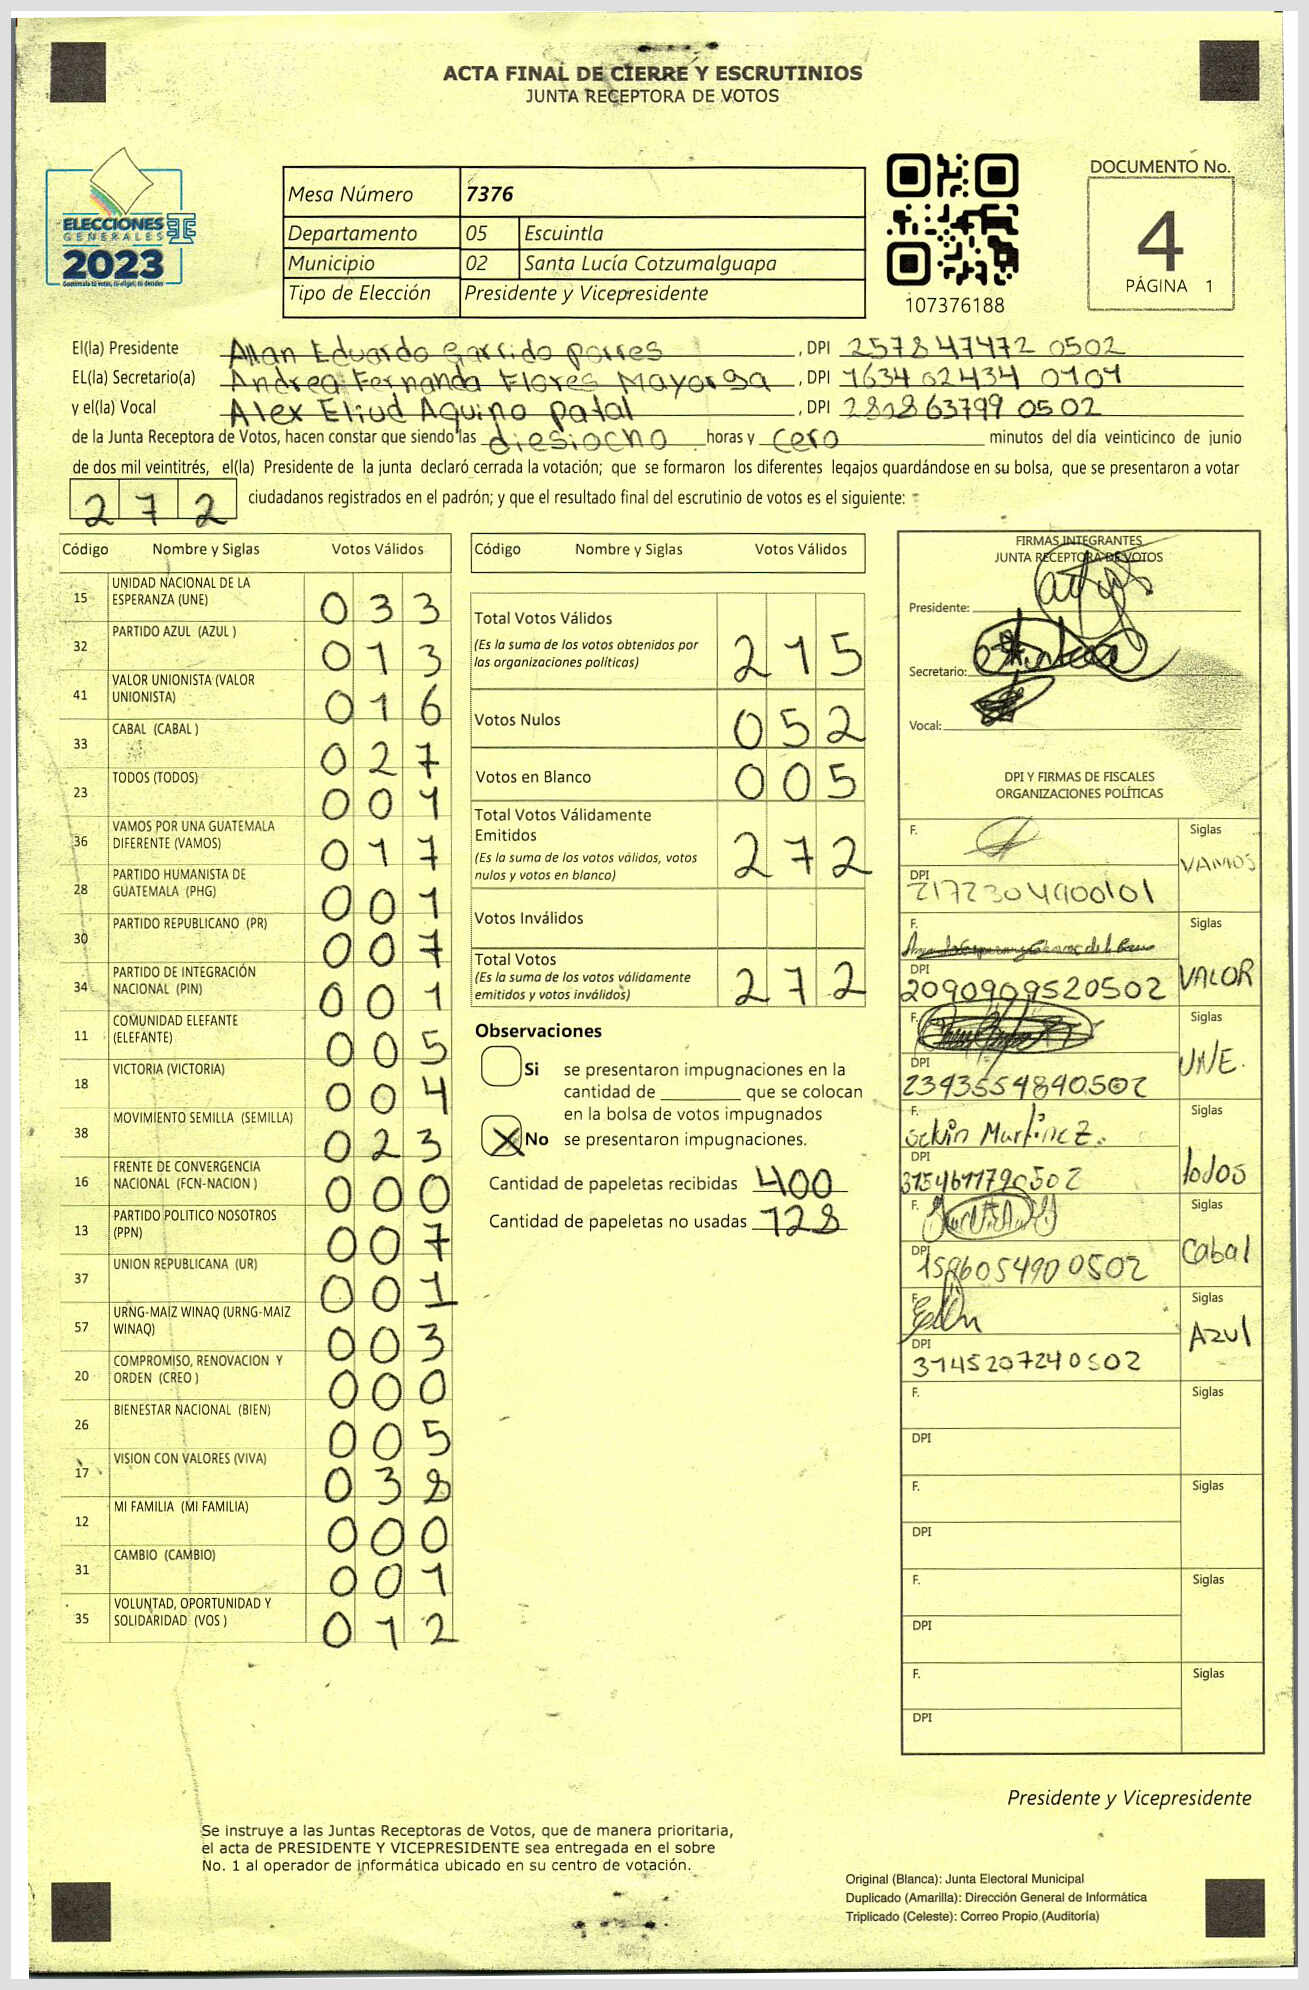 ACTA FINAL DE CIERRE Y ESCRUTINIOS
JUNTA RECEPTORA DE VOTOS
ELECCIONES
GENERALES
2023
Guatemala tú votas, tú eliges, tú decides
Mesa Número 7376
Departamento 05 Escuintla
Municipio 02 Santa Lucía Cotzumalguapa
Tipo de Elección Presidente y Vicepresidente
107376188
DOCUMENTO No.
4
PÁGINA 1
El(la) Presidente Allan Eduardo Garrido Porres, DPI 2578 47472 0502
EL(la) Secretario(a) Andrea Fernanda Flores Mayorga, DPI 1634 02434 0101
y el(la) Vocal Alex Eliud Aquino Patal, DPI 2828 63799 0502
de la Junta Receptora de Votos, hacen constar que siendo las diesiocho horas y cero minutos del día veinticinco de junio
de dos mil veintitrés, el(la) Presidente de la junta declaró cerrada la votación; que se formaron los diferentes legajos guardándose en su bolsa, que se presentaron a votar
272 ciudadanos registrados en el padrón; y que el resultado final del escrutinio de votos es el siguiente:
Código Nombre y Siglas Votos Válidos
15 UNIDAD NACIONAL DE LA ESPERANZA (UNE) 033
32 PARTIDO AZUL (AZUL ) 013
41 VALOR UNIONISTA (VALOR UNIONISTA) 016
33 CABAL (CABAL ) 027
23 TODOS (TODOS) 001
36 VAMOS POR UNA GUATEMALA DIFERENTE (VAMOS) 017
28 PARTIDO HUMANISTA DE GUATEMALA (PHG) 001
30 PARTIDO REPUBLICANO (PR) 007
34 PARTIDO DE INTEGRACIÓN NACIONAL (PIN) 001
11 COMUNIDAD ELEFANTE (ELEFANTE) 005
18 VICTORIA (VICTORIA) 004
38 MOVIMIENTO SEMILLA (SEMILLA) 023
16 FRENTE DE CONVERGENCIA NACIONAL (FCN-NACION ) 000
13 PARTIDO POLITICO NOSOTROS (PPN) 007
37 UNION REPUBLICANA (UR) 001
57 URNG-MAIZ WINAQ (URNG-MAIZ WINAQ) 003
20 COMPROMISO, RENOVACION Y ORDEN (CREO ) 000
26 BIENESTAR NACIONAL (BIEN) 005
17 VISION CON VALORES (VIVA) 038
12 MI FAMILIA (MI FAMILIA) 000
31 CAMBIO (CAMBIO) 001
35 VOLUNTAD, OPORTUNIDAD Y SOLIDARIDAD (VOS ) 012
Código Nombre y Siglas Votos Válidos
Total Votos Válidos 215
(Es la suma de los votos obtenidos por
las organizaciones políticas)
Votos Nulos 052
Votos en Blanco 005
Total Votos Válidamente
Emitidos 272
(Es la suma de los votos válidos, votos
nulos y votos en blanco)
Votos Inválidos
Total Votos 272
(Es la suma de los votos válidamente
emitidos y votos inválidos)
Observaciones
Si se presentaron impugnaciones en la
cantidad de ________ que se colocan
en la bolsa de votos impugnados
X No se presentaron impugnaciones.
Cantidad de papeletas recibidas 400
Cantidad de papeletas no usadas 128
FIRMAS INTEGRANTES
JUNTA RECEPTORA DE VOTOS
Presidente:
Secretario:
Vocal:
DPI Y FIRMAS DE FISCALES
ORGANIZACIONES POLÍTICAS
F. Siglas
DPI 2172304900101 VAMOS
F. Siglas
DPI 2090909520502 VALOR
F. Siglas
DPI 2343554840502 UNE.
F. Selvin Martinez. Siglas
DPI 3154611790502 todos
F. Siglas
DPI 1586054900502 Cabal
F. Siglas
DPI 3145207240502 Azul
F. Siglas
DPI
F. Siglas
DPI
F. Siglas
DPI
F. Siglas
DPI
Presidente y Vicepresidente
Se instruye a las Juntas Receptoras de Votos, que de manera prioritaria,
el acta de PRESIDENTE Y VICEPRESIDENTE sea entregada en el sobre
No. 1 al operador de informática ubicado en su centro de votación.
Original (Blanca): Junta Electoral Municipal
Duplicado (Amarilla): Dirección General de Informática
Triplicado (Celeste): Correo Propio (Auditoría)